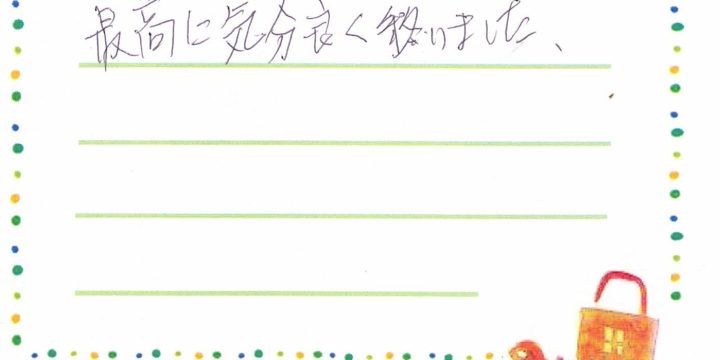 最高に気分良く終りました、